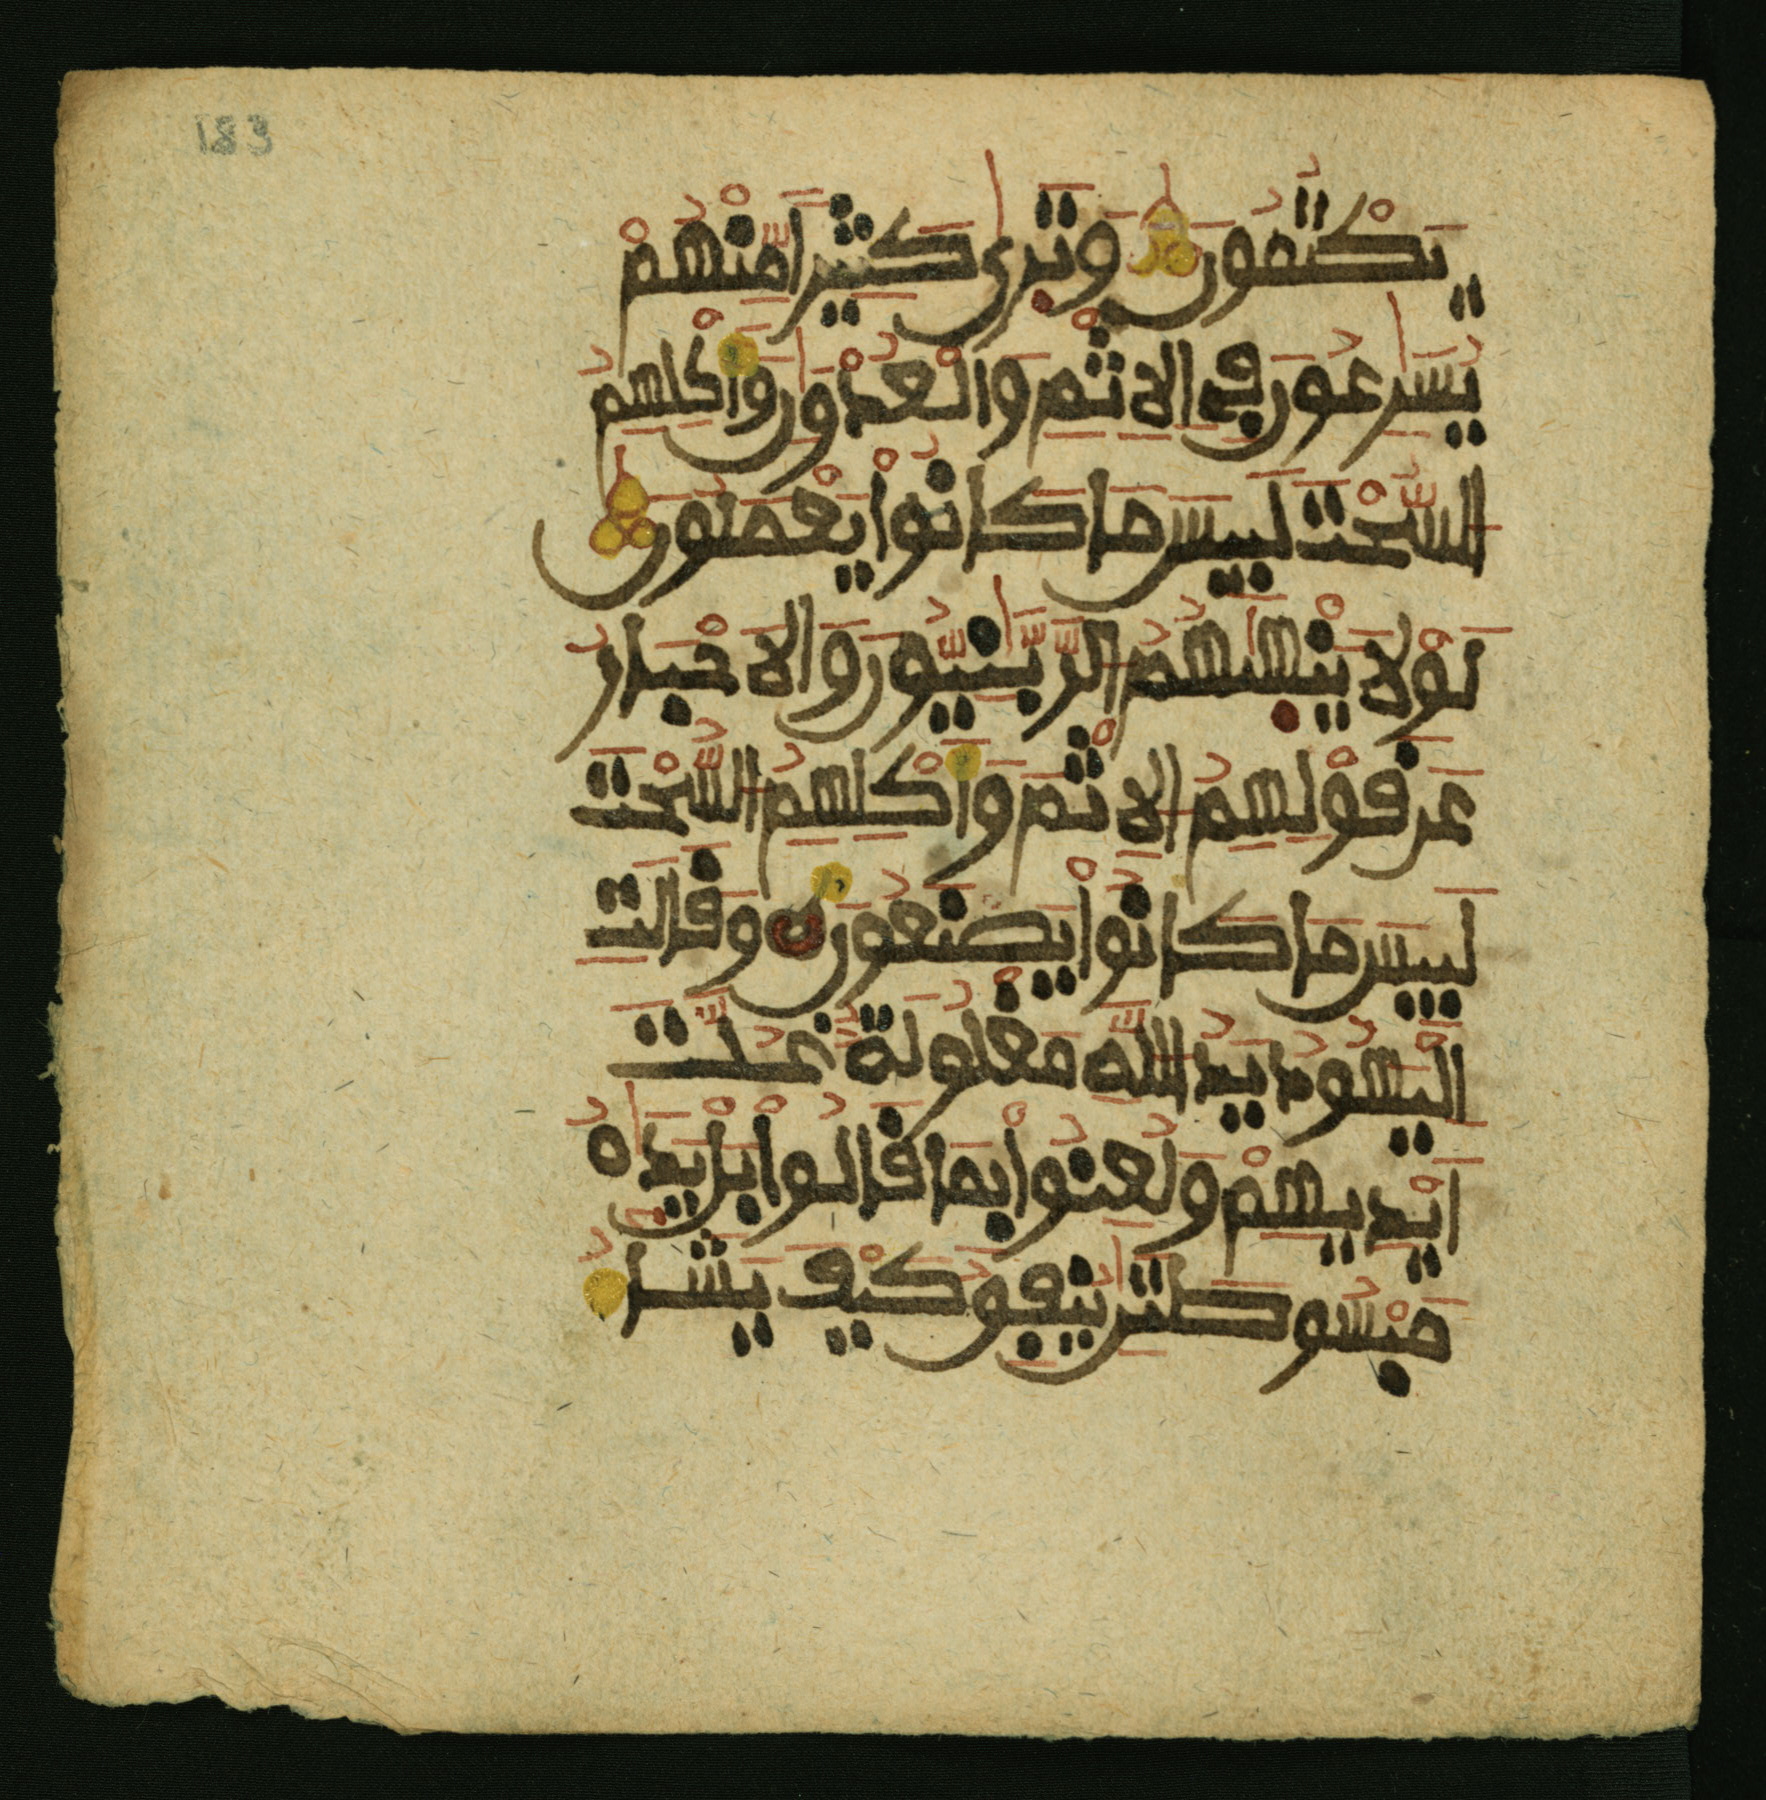 183
يَكْتُمُونَ وَتَرٜىٰ كَثِيراً مِّنْهُمْ
يُسَٰرِعُونَ فِے اِ۬لِاثْمِ وَالْعُدْوَٰنِ وَأَكْلِهِمُ
اُ۬لسُّحْتَ لَبِيسَ مَا كَانُواْ يَعْمَلُونَ
لَوْلَا يَنْهٜيٰهُمُ اُ۬لرَّبَّٰنِيُّونَ وَالَاحْبَارُ
عَن قَوْلِهِمُ اُ۬لِاثْمَ وَأَكْلِهِمُ اُ۬لسُّحْتَ
لَبِيسَ مَا كَانُواْ يَصْنَعُونَ وَقَالَتِ
اِ۬لْيَهُودُ يَدُ اُ۬للَّهِ مَغْلُولَةٌ غُلَّتَ
اَيْدِيهِمْ وَلُعِنُواْ بِمَا قَالُواْ بَلْ يَدَٰهُ
مَبْسُوطَتَٰنِ يُنفِقُ كَيْفَ يَشَآءُ